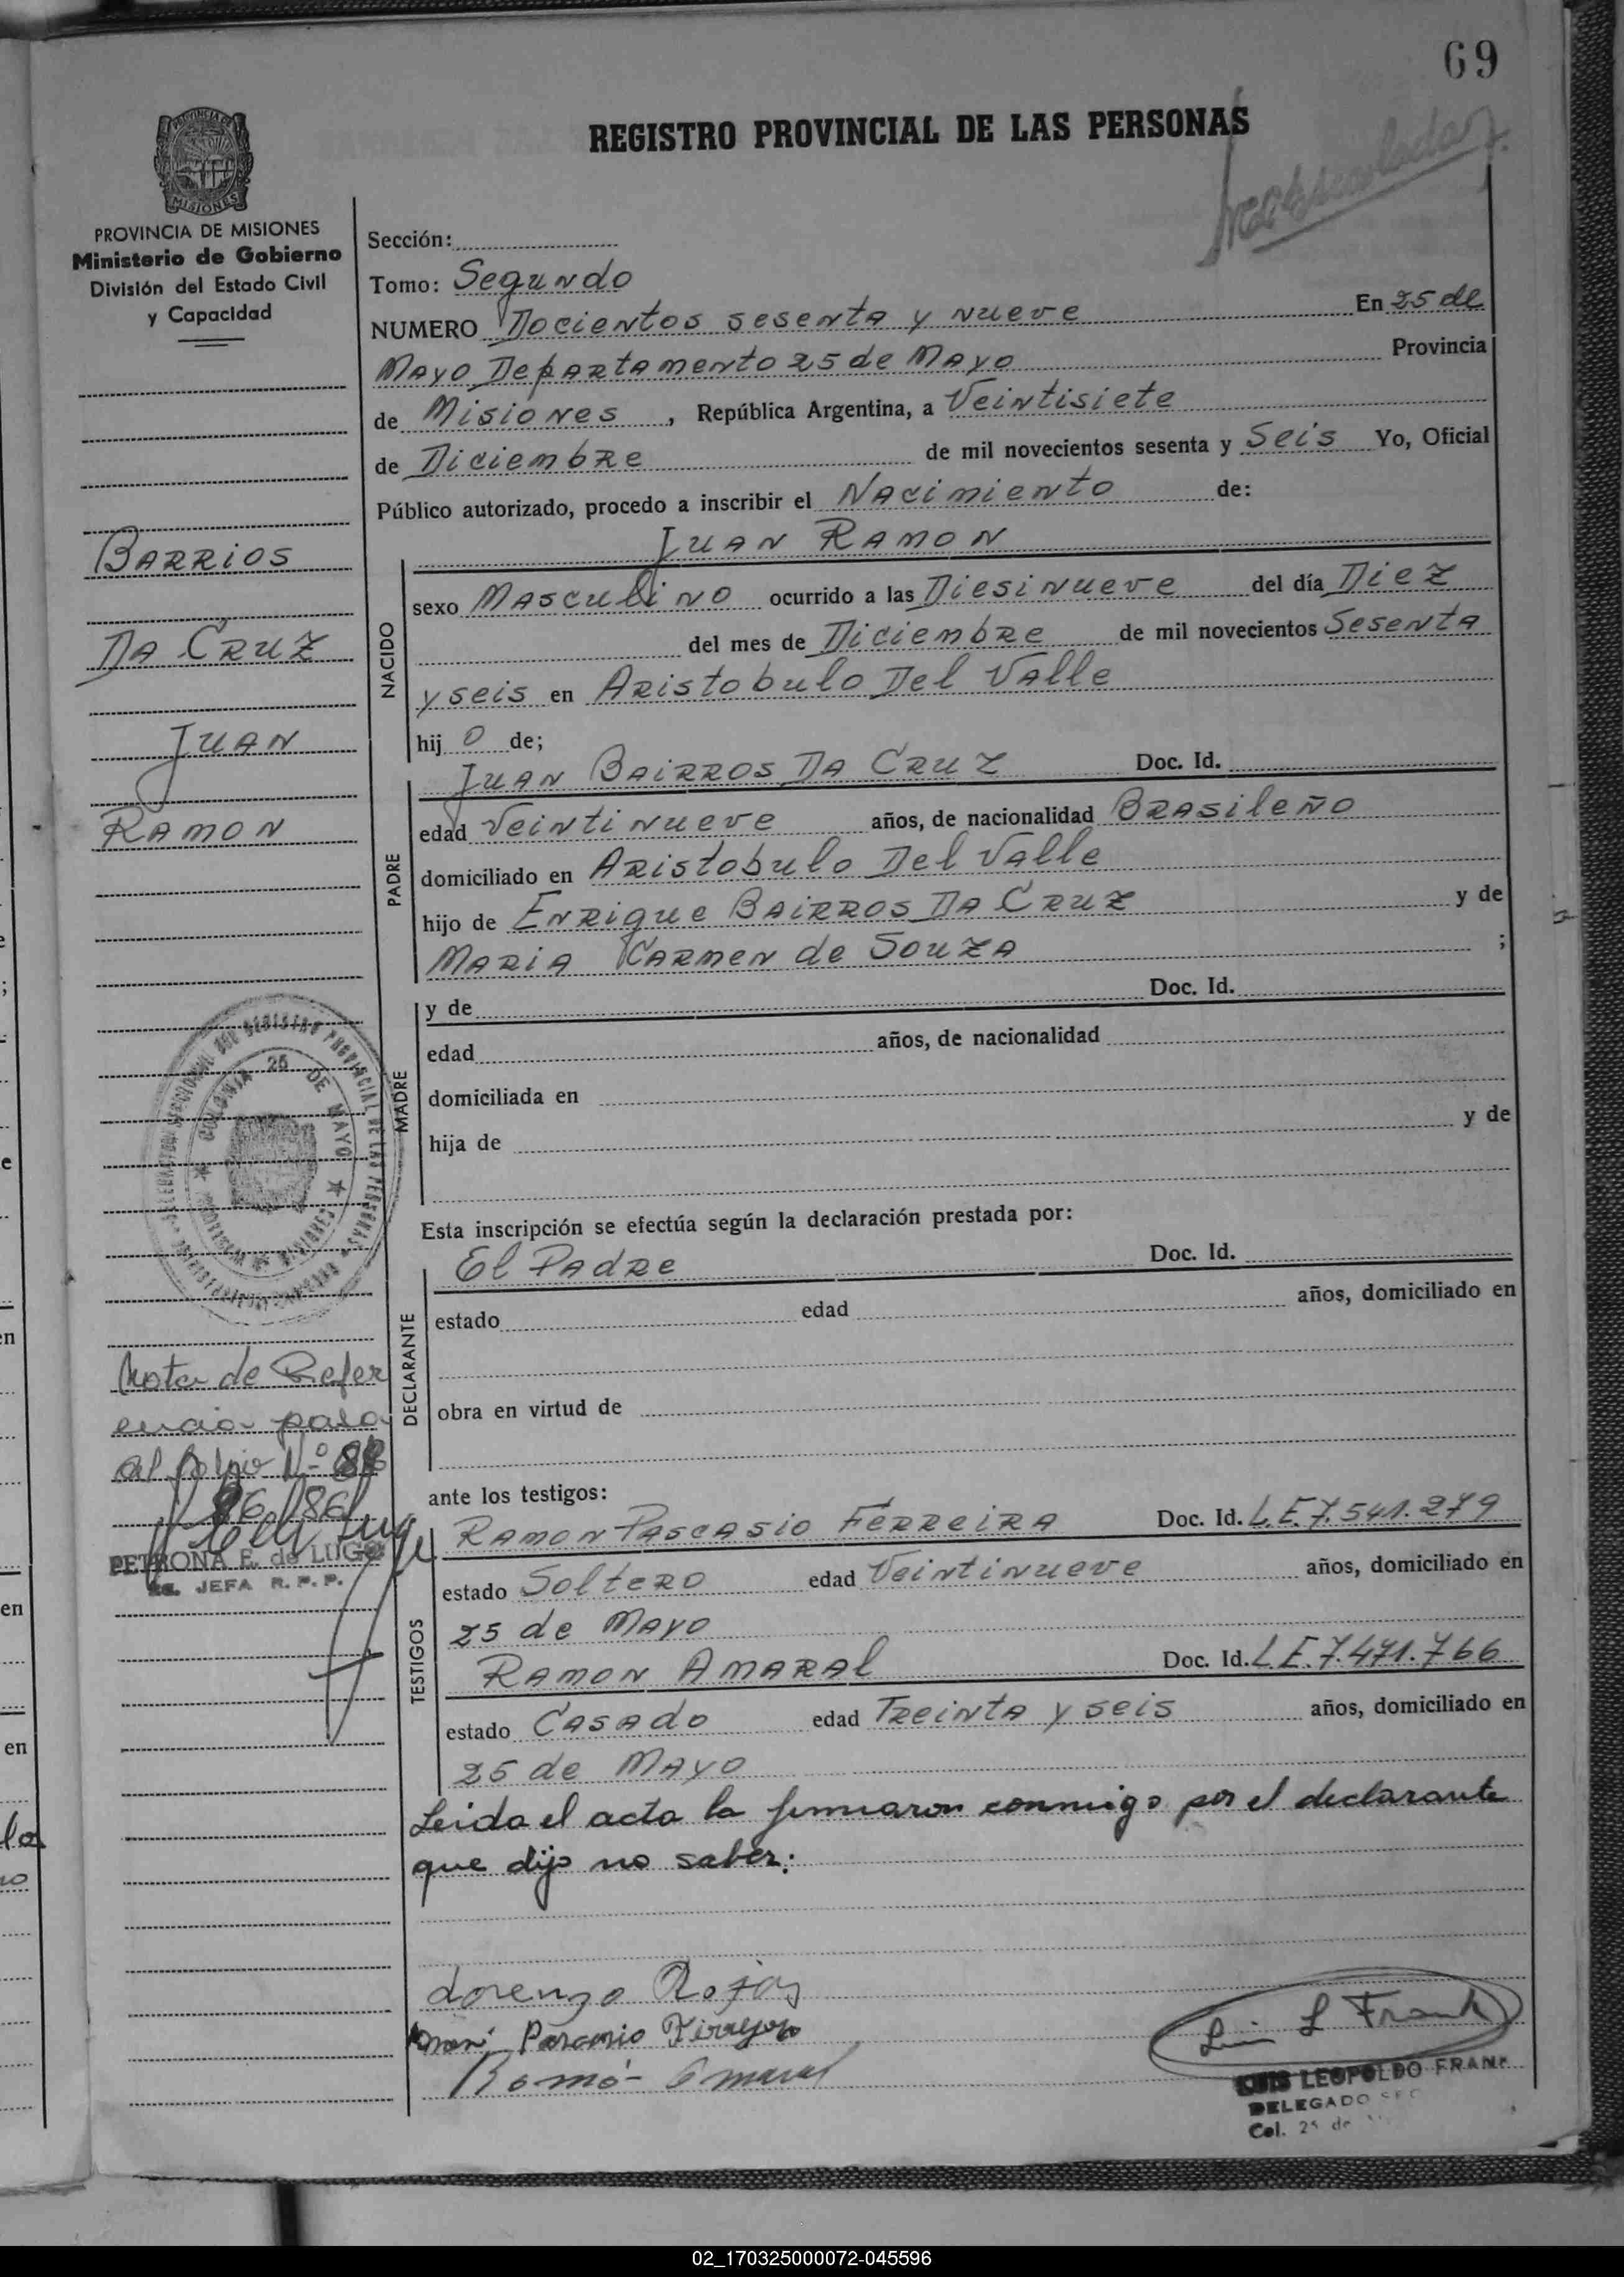 69
REGISTRO PROVINCIAL DE LAS PERSONAS
PROVINCIA DE MISIONES
MISIONES
PROVINCIA DE MISIONES
Ministerio de Gobierno
División del Estado Civil
y Capacidad
BARRIOS
DA CRUZ
JUAN
RAMON
COLONIA 25 DE MAYO
Nota de Refer
encia pasa
al folio Nº
86/86
PETRONA E. de LUGO
JEFA R. P. P.
Sección:
Tomo: Segundo
NUMERO Docientos sesenta y nueve En 25 de
Mayo Departamento 25 de Mayo Provincia
de Misiones, República Argentina, a Veintisiete
de Diciembre de mil novecientos sesenta y Seis Yo, Oficial
Público autorizado, procedo a inscribir el Nacimiento de:
JUAN RAMON
NACIDO
sexo Masculino ocurrido a las Diesinueve del día Diez
del mes de Diciembre de mil novecientos Sesenta
y seis en Aristobulo Del Valle
hij o de;
JUAN BAIRROS DA CRUZ Doc. Id.
PADRE
edad Veintinueve años, de nacionalidad Brasileño
domiciliado en Aristobulo Del Valle
hijo de Enrique BAIRROS DA CRUZ y de
MARIA CARMEN de SOUZA ;
y de Doc. Id.
MADRE
edad años, de nacionalidad
domiciliada en
hija de y de
Esta inscripción se efectúa según la declaración prestada por:
El Padre Doc. Id.
DECLARANTE
estado edad años, domiciliado en
obra en virtud de
ante los testigos:
RAMON PASCASIO FERREIRA Doc. Id. L.E. 7.541.279
TESTIGOS
estado Soltero edad Veintinueve años, domiciliado en
25 de Mayo
RAMON AMARAL Doc. Id. L E. 7.471.766
estado Casado edad Treinta y seis años, domiciliado en
25 de Mayo
Leida el acta la firmaron conmigo por el declarante
que dijo no saber:
Lorenzo Rojas
Ramó Amaral
Luis L Frank
LUIS LEOPOLDO FRANK
DELEGADO
Col. 25 de
02_170325000072-045596